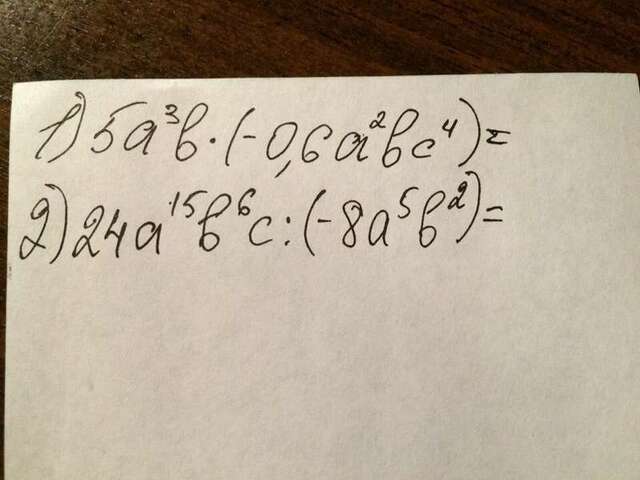 1) 5a³b·(-0,6a²bc⁴)=
2) 24a¹⁵b⁶c:(-8a⁵b²)=